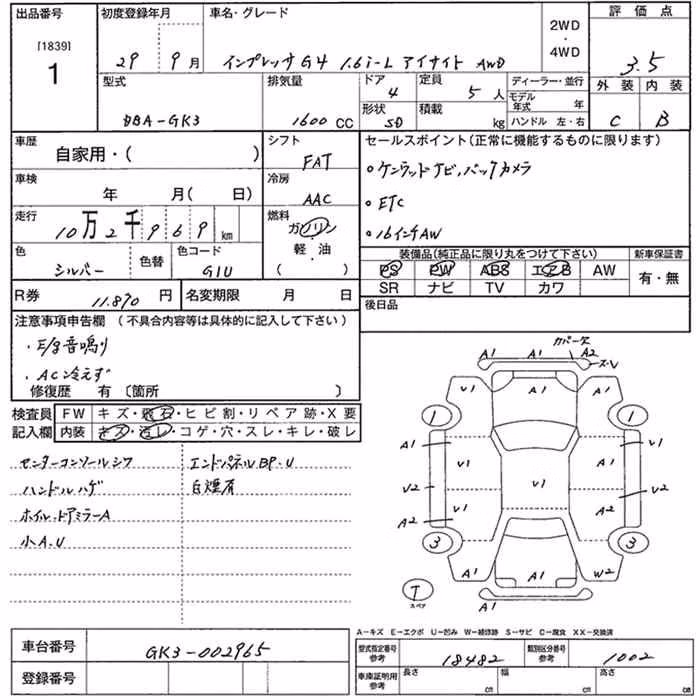 出品番号
[1839]
1
初度登録年月
29 9月
車名・グレード
インプレッサ G4 1.6i-L アイサイト AWD
2WD
・
4WD
評価点
3.5
外装 内装
C B
型式
DBA-GK3
排気量
1600 CC
ドア
4
定員
5人
形状
SD
積載
kg
ディーラー・並行
モデル年式 年
ハンドル 左・右
車歴
自家用・( )
シフト
FAT
車検
年 月( 日)
冷房
AAC
走行
10万2千969 km
燃料
ガソリン
・
軽油
( )
色
シルバー
色替
色コード
G1U
R券 11,870 円
名変期限 月 日
セールスポイント(正常に機能するものに限ります)
・ケンウッドナビ,バックカメラ
・ETC
・16インチAW
装備品(純正品に限り丸をつけて下さい)
PS PW ABS エアB AW
SR ナビ TV カワ
新車保証書
有・無
後日品
注意事項申告欄 (不具合内容等は具体的に記入して下さい)
・E/g音鳴り
・AC冷えず
修復歴 有 〔箇所 〕
検査員
記入欄
FW キズ・飛石・ヒビ割・リペア跡・X要
内装 キズ・汚レ・コゲ・穴・スレ・キレ・破レ
センターコンソールシワ
ハンドルハゲ
ホイル.ドアミラーA
小A.U
エンドパネルBP.U
白煙有
カバー欠
A1 A1 A2
ズーV
V1 A1 V1
1 1
A1 V1 V1 A1
V2 V1 V2
A2 V1 A2
3 3
A1 A1 W2
T
スペア
A1
A-キズ E-エクボ U-凹み W-補修跡 S-サビ C-腐食 XX-交換済
車台番号 GK3-002965
登録番号
型式指定番号
参考
18482
類別区分番号
参考
1002
車庫証明用
参考
長さ cm
幅 cm
高さ cm